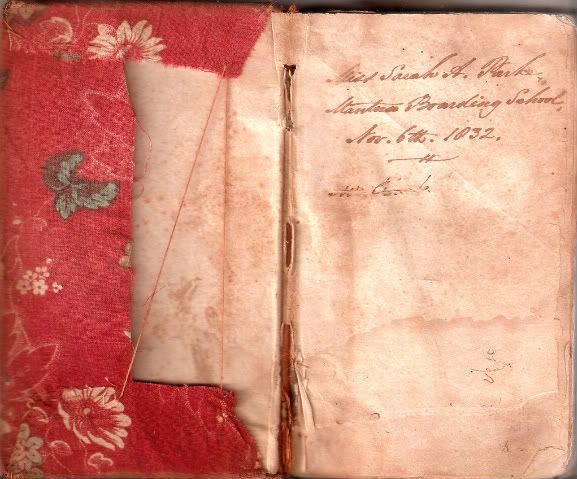 Miss Sarah A. Parke
Mantua Boarding School,
Nov. 6th. 1832.